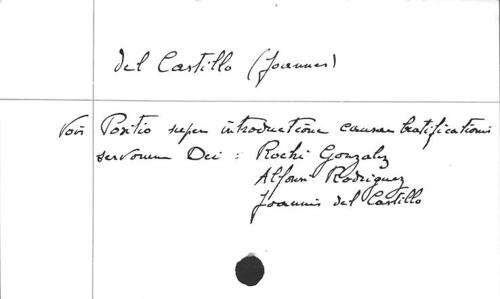 del Castillo (Joannes)
Voir Positio super introductione causae beatificationis
servorum Dei : Rochi Gonzalez
Alfonsi Rodriguez
Joannis del Castillo